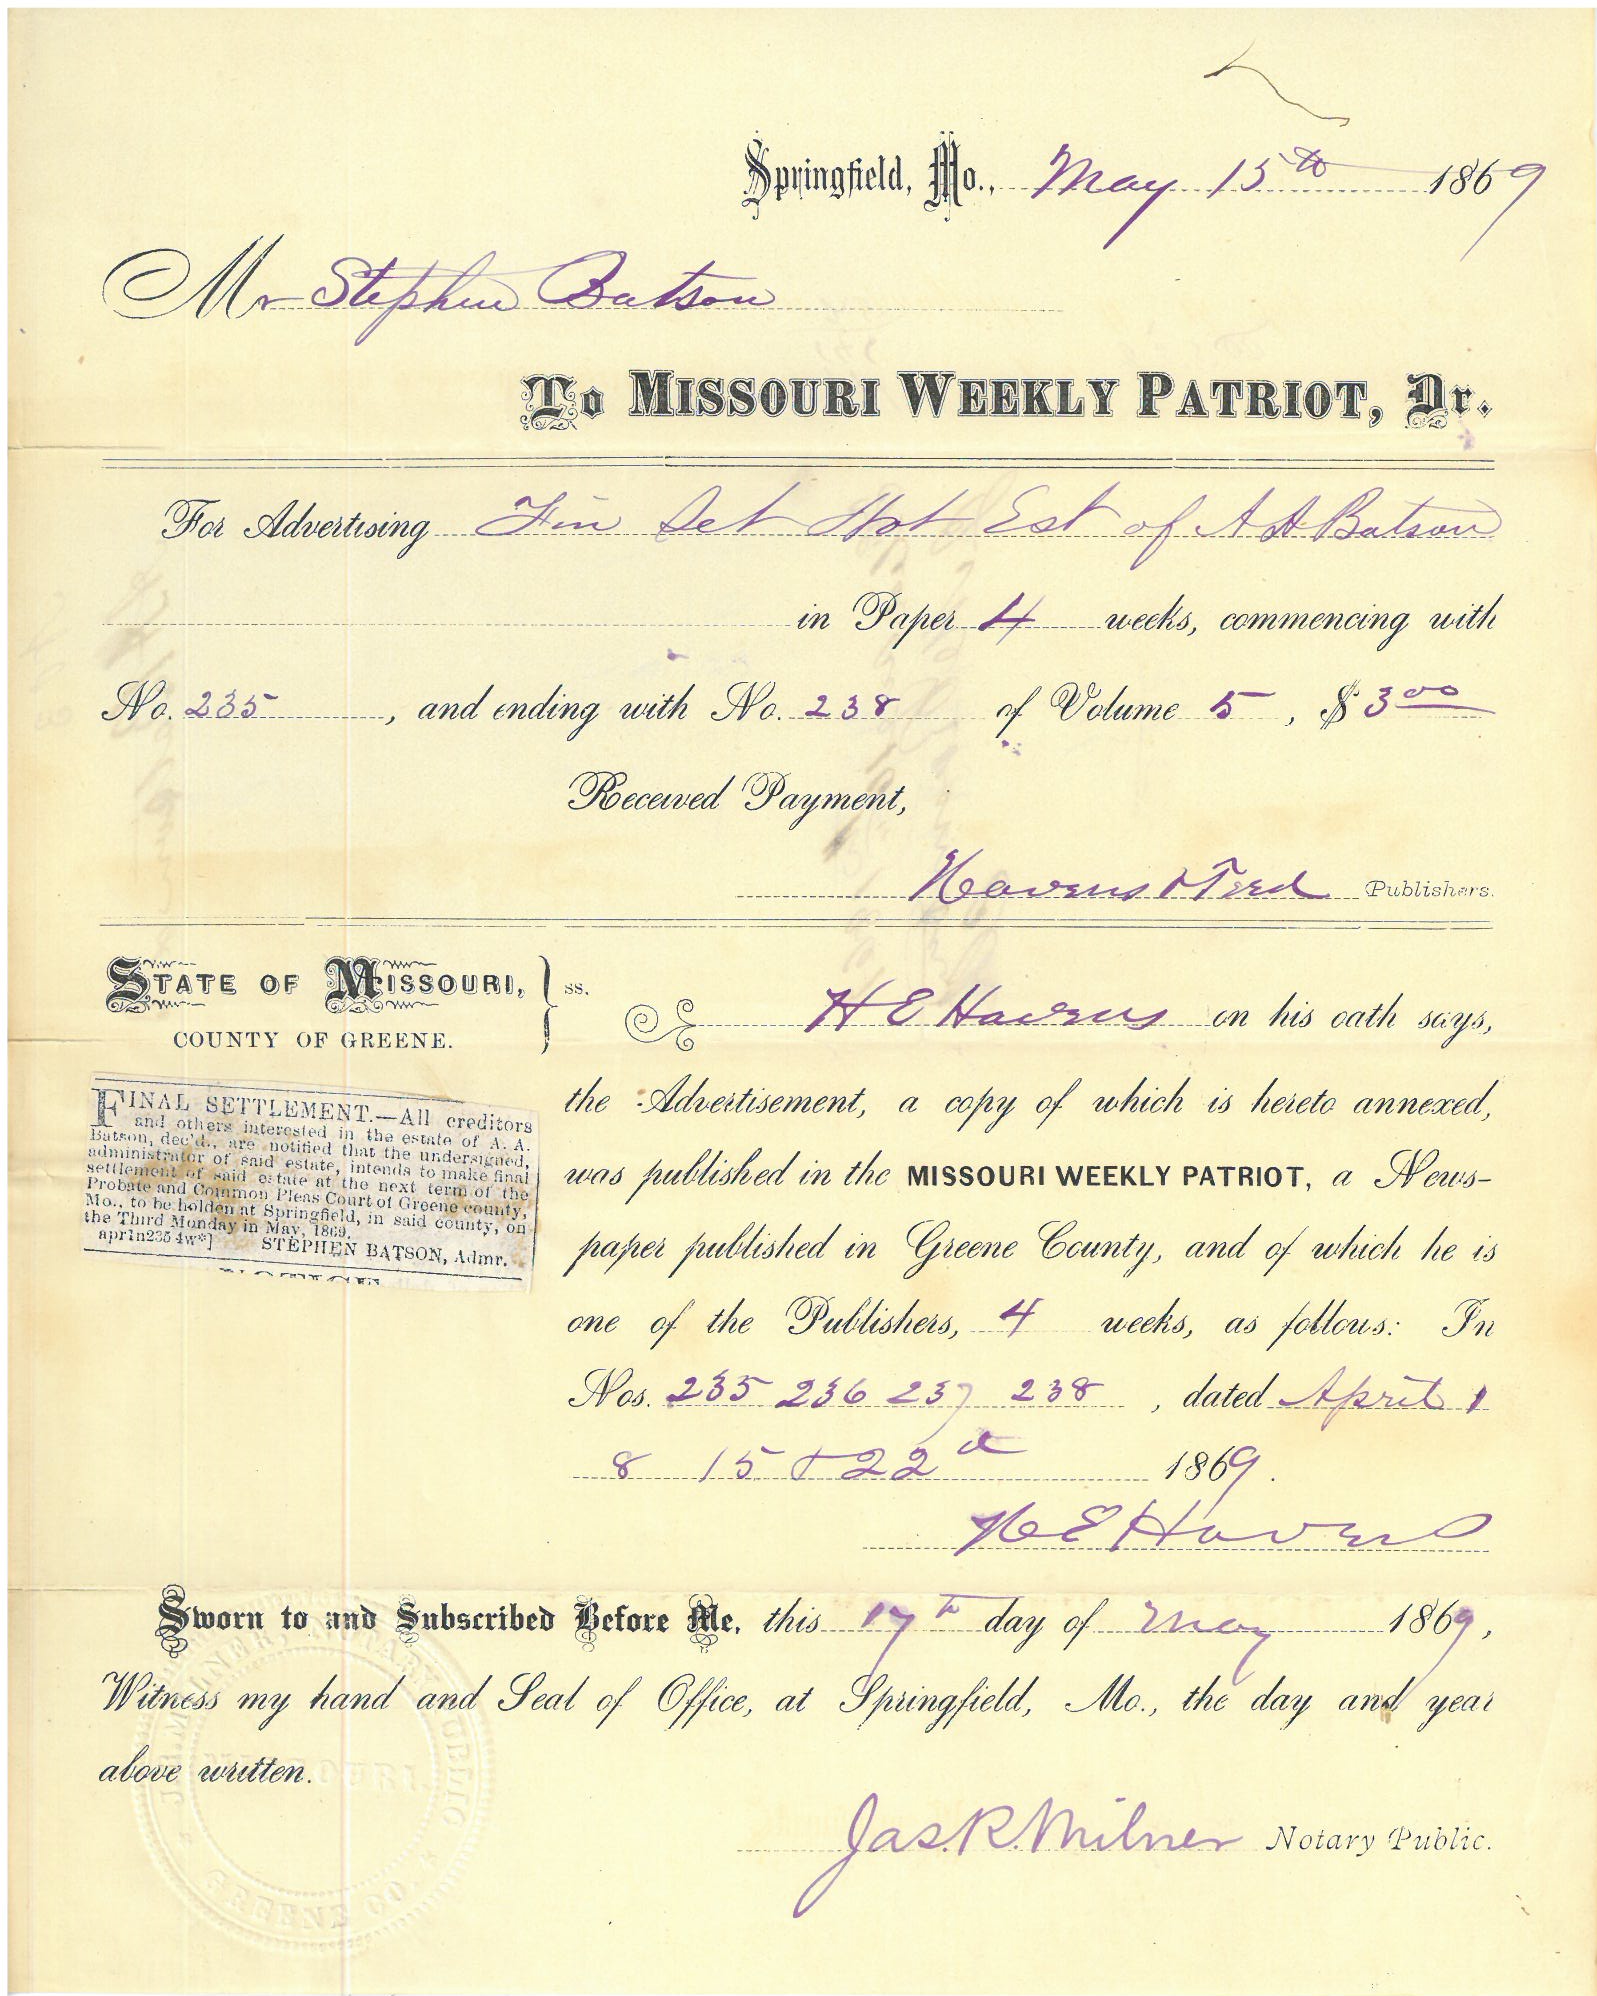 Springfield, Mo., May 15th 1869
Mr Stephen Batson
To MISSOURI WEEKLY PATRIOT, Dr.
For Advertising Fin Set Not Est of A A Batson
in Paper 4 weeks, commencing with
No. 235, and ending with No. 238 of Volume 5, $3 00
Received Payment,
Havens & Publishers.
STATE OF MISSOURI, } ss.
COUNTY OF GREENE.
H E Havens on his oath says,
the Advertisement, a copy of which is hereto annexed,
was published in the MISSOURI WEEKLY PATRIOT, a News-
paper published in Greene County, and of which he is
one of the Publishers, 4 weeks, as follows: In
Nos. 235 236 237 238, dated April 1
8 15 & 22d 1869.
H E Havens
FINAL SETTLEMENT.—All creditors
and others interested in the estate of A. A.
Batson, dec'd., are notified that the undersigned,
administrator of said estate, intends to make final
settlement of said estate at the next term of the
Probate and Common Pleas Court of Greene county,
Mo., to be holden at Springfield, in said county, on
the Third Monday in May, 1869.
apr1n235 4w*] STEPHEN BATSON, Admr.
NOTICE
Sworn to and Subscribed Before Me, this 17th day of May 1869,
Witness my hand and Seal of Office, at Springfield, Mo., the day and year
above written.
Jas. R. Milner Notary Public.
MILNER NOTARY PUBLIC
MISSOURI.
GREENE CO.